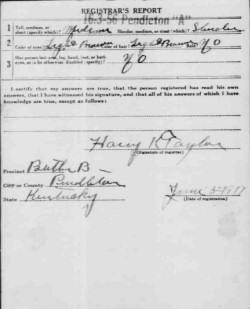 REGISTRAR'S REPORT
16-3-56 Pendleton "A"
1 Tall, medium, or short (specify which)? Medium Slender, medium, or stout (which)? Slender
2 Color of eyes Light Brown Color of hair Light Brown Bald? No
3 Has person lost arm, leg, hand, foot, or both eyes, or is he otherwise disabled (specify)? No
I certify that my answers are true, that the person registered has read his own
answers, that I have witnessed his signature, and that all of his answers of which I
have knowledge are true, except as follows:
Harry K Taylor
(Signature of registrar)
Precinct Butler B
City or County Pendleton
State Kentucky
June 5-1917
(Date of registration)